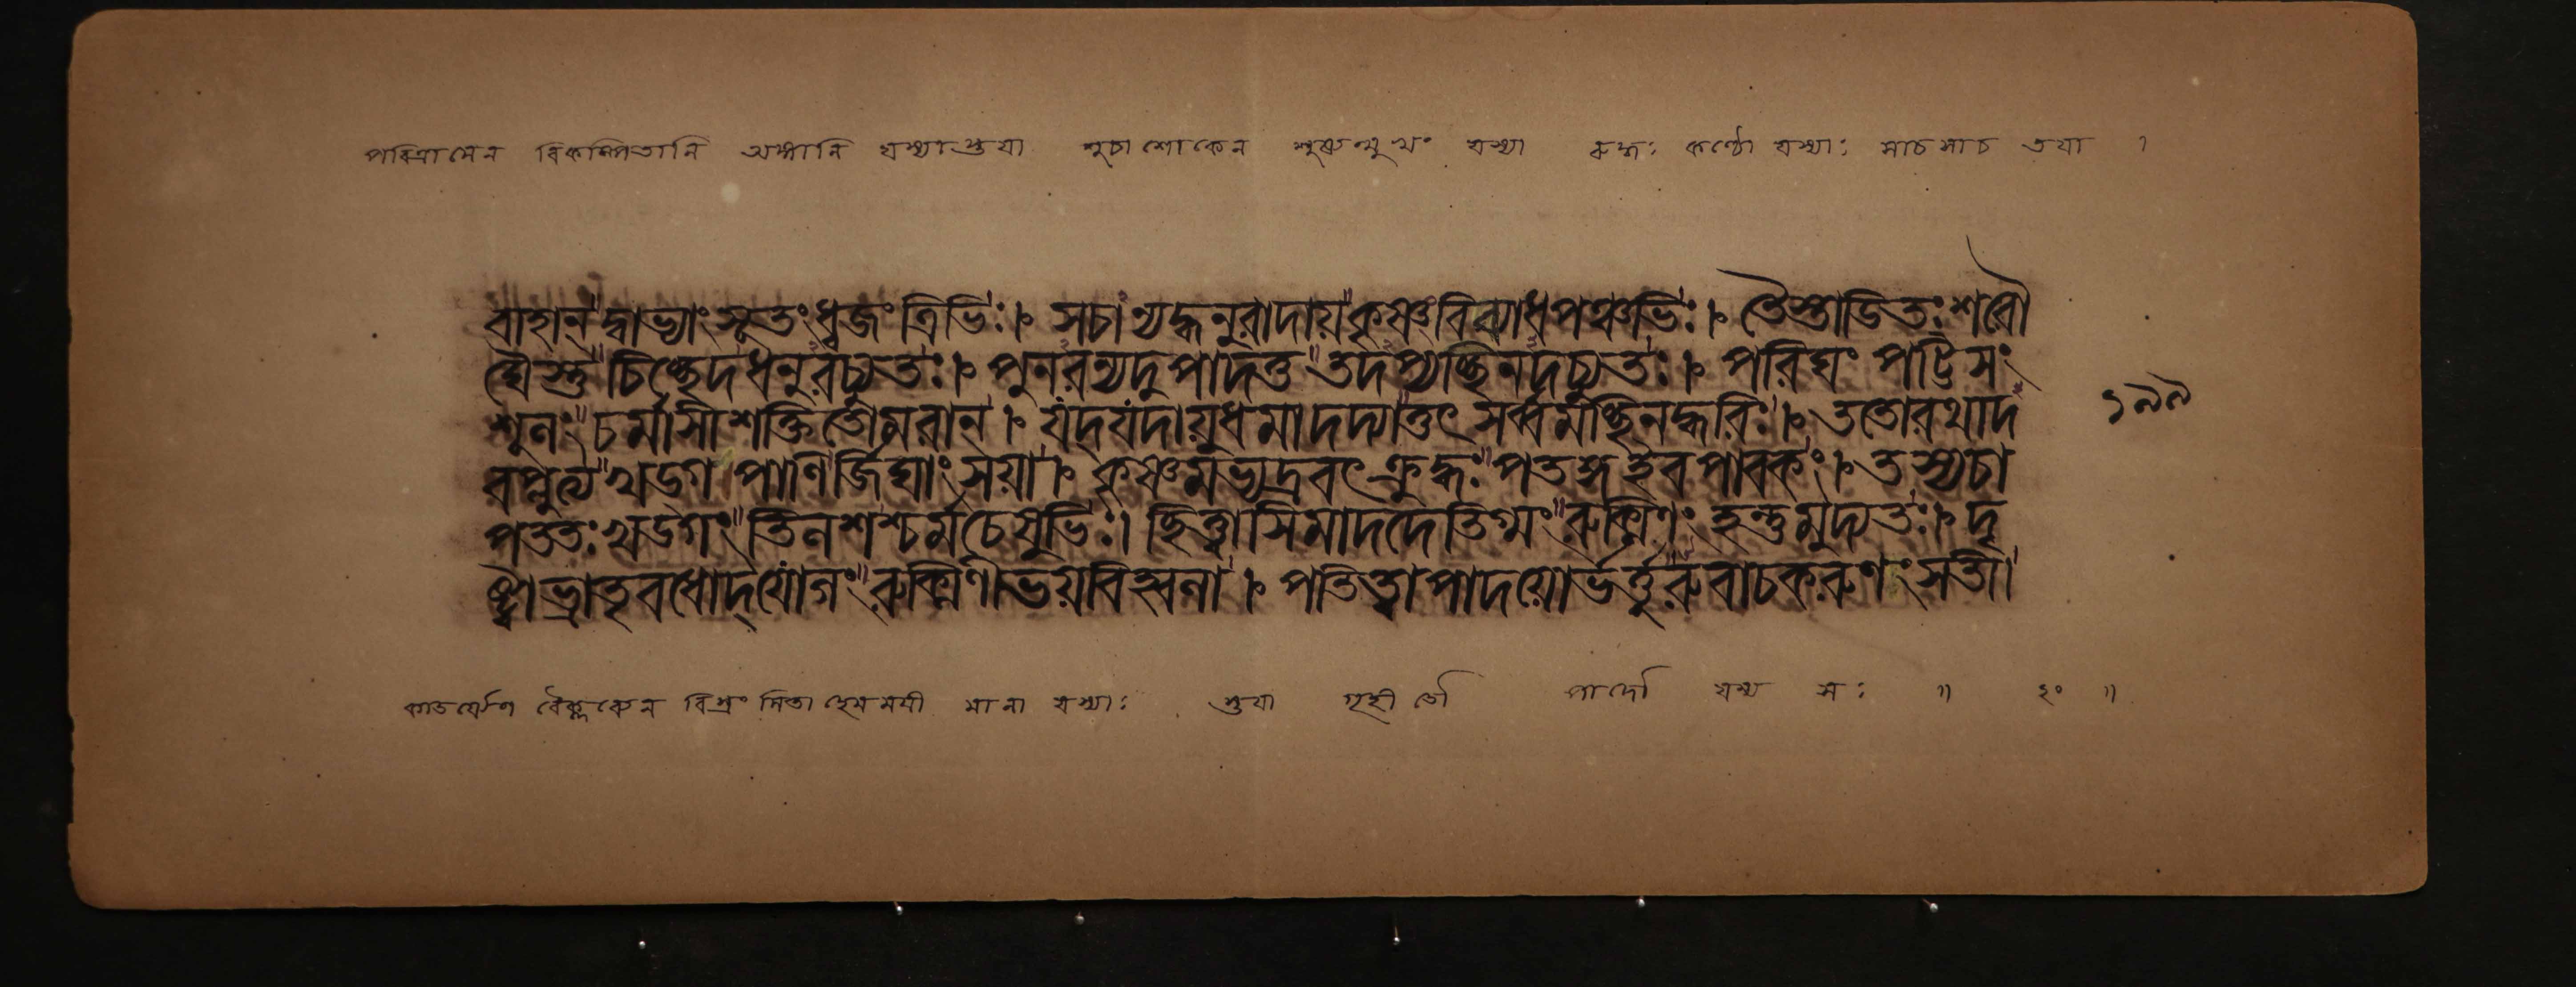 পরিত্রাসেন বিকম্পিতানি অঙ্গানি যস্যাস্তয়া শুচা শোকেন শুষ্যন্মুখং যস্যা রুদ্ধঃ কণ্ঠো যস্যাঃ সাচ সাচ তয়া ।
বাহান্ দ্বাভ্যাং সূতং ধ্বজং ত্রিভিঃ। সচান্যদ্ধনুরাদায় কৃষ্ণং বিব্যাধ পঞ্চভিঃ। তৈস্তাডিতঃ শরৌ
ঘৈস্তু চিচ্ছেদ ধনুরচ্যুতঃ। পুনরন্যদুপাদত্ত তদপ্যচ্ছিনদচ্যুতঃ। পরিঘং পট্টিসং
শূলং চর্মাসী শক্তিতোমরান্। যদ্ যদায়ুধমাদদ্যাত্তৎ সর্ব্বমচ্ছিনদ্ধরিঃ। ততোরথাদ
বপ্লুত্য খড্গপাণির্জিঘাংসয়া। কৃষ্ণমভ্যদ্রবৎ ক্রুদ্ধঃ পতঙ্গ ইব পাবকং। তস্যচা
পততঃ খড্গং তিলশশ্চর্ম চেষুভিঃ। ছিত্ত্বাসিমাদদে তিগ্মং রুক্মিণং হন্তুমুদ্যতঃ। দৃ
ষ্ট্বা ভ্রাতৃবধোদ্যোগং রুক্মিণী ভয়বিহ্বলা। পতিত্বা পাদয়োর্ভর্ত্তুরুবাচ করুণং সতী।
১৯৯
কাতর্য্যেণ বৈক্লব্যেন বিস্রংসিতা হেমময়ী মালা যস্যাঃ তয়া গৃহীতৌ পাদৌ যস্য সঃ ॥ ২০ ॥